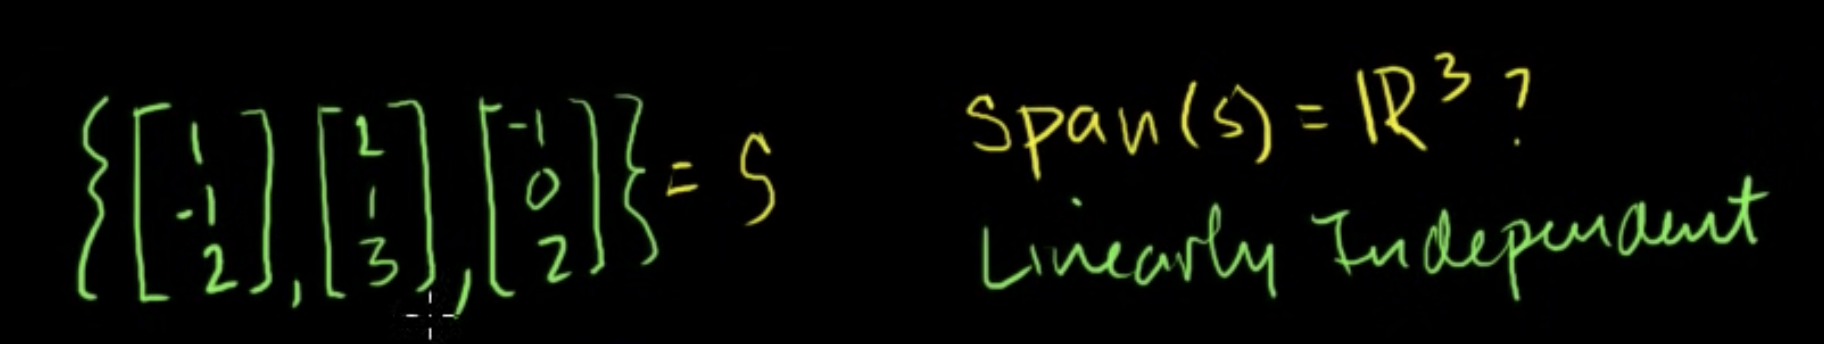 {[1 -1 2], [2 1 3], [-1 0 2]} = S
Span(S) = ℝ³ ?
Linearly Independent